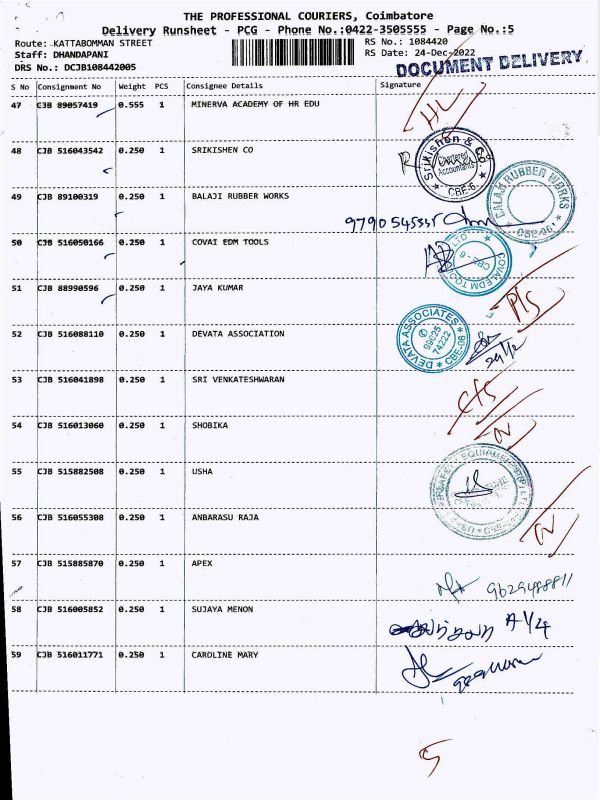 THE PROFESSIONAL COURIERS, Coimbatore
Delivery Runsheet - PCG - Phone No.:0422-3505555 - Page No.:5
Route: KATTABOMMAN STREET RS No.: 1084420
Staff: DHANDAPANI RS Date: 24-Dec-2022
DRS No.: DCJB108442005
DOCUMENT DELIVERY
S No Consignment No Weight PCS Consignee Details Signature
47 CJB 89057419 0.555 1 MINERVA ACADEMY OF HR EDU
48 CJB 516043542 0.250 1 SRIKISHEN CO
Srikishen & Co. Chartered Accountants CBE-6
49 CJB 89100319 0.250 1 BALAJI RUBBER WORKS
BALAJI RUBBER WORKS
9790545335
50 CJB 516050166 0.250 1 COVAI EDM TOOLS
COVAI EDM TOOLS CBE - 6
51 CJB 88990596 0.250 1 JAYA KUMAR
52 CJB 516088110 0.250 1 DEVATA ASSOCIATION
DEVATA ASSOCIATES CBE-06
53 CJB 516041898 0.250 1 SRI VENKATESHWARAN
54 CJB 516013060 0.250 1 SHOBIKA
55 CJB 515882508 0.250 1 USHA
56 CJB 516055308 0.250 1 ANBARASU RAJA
57 CJB 515885870 0.250 1 APEX
58 CJB 516005852 0.250 1 SUJAYA MENON
59 CJB 516011771 0.250 1 CAROLINE MARY